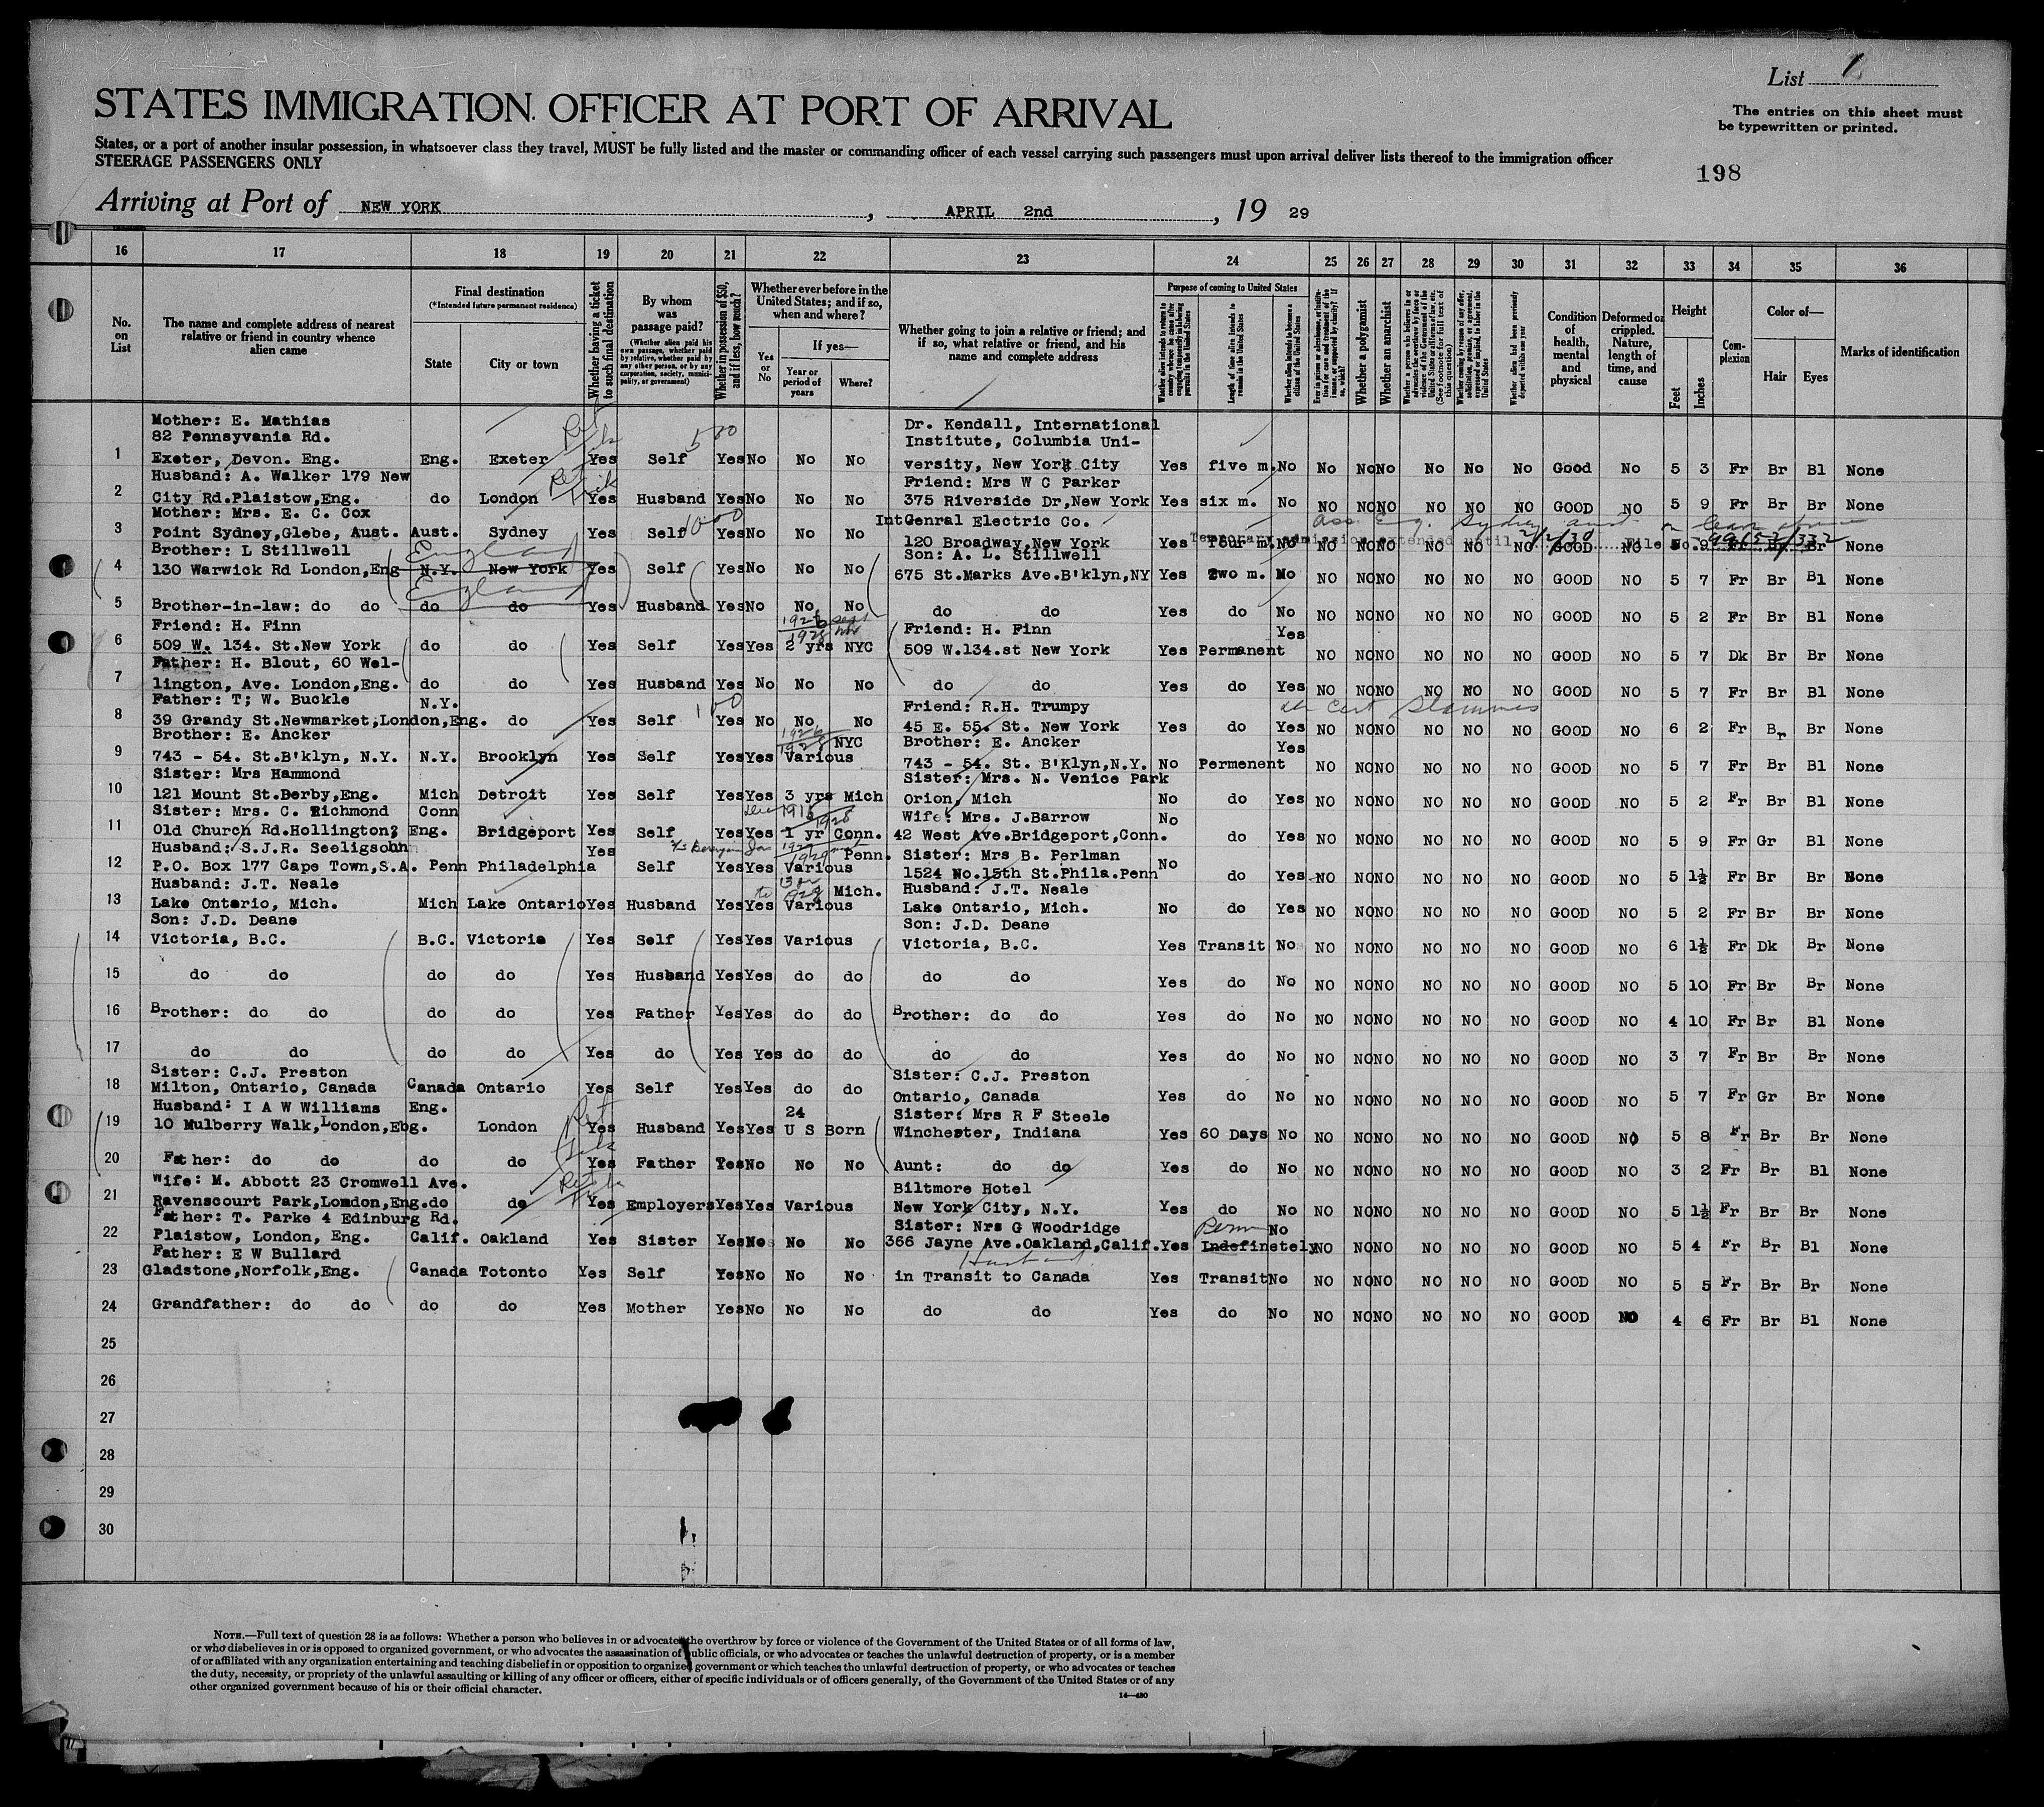 List 1
STATES IMMIGRATION OFFICER AT PORT OF ARRIVAL
The entries on this sheet must
be typewritten or printed.
States, or a port of another insular possession, in whatsoever class they travel, MUST be fully listed and the master or commanding officer of each vessel carrying such passengers must upon arrival deliver lists thereof to the immigration officer
STEERAGE PASSENGERS ONLY
198
Arriving at Port of NEW YORK , APRIL 2nd , 19 29
16 17 18 19 20 21 22 23 24 25 26 27 28 29 30 31 32 33 34 35 36
No. on List
The name and complete address of nearest relative or friend in country whence alien came
Final destination
(*Intended future permanent residence)
State
City or town
Whether having a ticket to such final destination
By whom was passage paid?
(Whether alien paid his own passage, whether paid by relative, whether paid by any other person, or by any corporation, society, municipality, or government)
Whether in possession of $50, and if less, how much?
Whether ever before in the United States; and if so, when and where?
Yes or No
If yes—
Year or period of years
Where?
Whether going to join a relative or friend; and if so, what relative or friend, and his name and complete address
Purpose of coming to United States
Length of time alien intends to remain in the United States
Whether alien intends to become a citizen of the United States
Whether a polygamist
Whether an anarchist
Condition of health, mental and physical
Deformed or crippled. Nature, length of time, and cause
Height
Feet
Inches
Complexion
Color of—
Hair
Eyes
Marks of identification
Mother: E. Mathias
82 Pennsyvania Rd.
Dr. Kendall, International
Institute, Columbia Uni-
1 Exeter, Devon. Eng. Eng. Exeter Yes Self 500 Yes No No No versity, New York City Yes five m. No No No No No No No Good No 5 3 Fr Br Bl None
Husband: A. Walker 179 New
Friend: Mrs W C Parker
2 City Rd.Plaistow,Eng. do London Yes Husband Yes No No No 375 Riverside Dr,New York Yes six m. No NO NO NO NO NO NO GOOD NO 5 9 Fr Br Br None
Mother: Mrs. E. C. Cox
IntGenral Electric Co.
3 Point Sydney,Glebe, Aust. Aust. Sydney Yes Self 1000 Yes No No No 120 Broadway,New York Yes four m. No NO GOOD NO 5 9 Br None
Temporary admission extended until 2/2/30 File No. 99/52/332
Brother: L Stillwell
England
Son: A. L. Stillwell
4 130 Warwick Rd London,Eng N.Y. New York Yes Self Yes No No No 675 St.Marks Ave.B'klyn,NY Yes Two m. No NO NO NO NO NO NO GOOD NO 5 7 Fr Br Bl None
England
5 Brother-in-law: do do do do Yes Husband Yes No No No do do Yes do No NO NO NO NO NO NO GOOD NO 5 2 Fr Br Bl None
Friend: H. Finn
1926
1928
Friend: H. Finn
6 509 W. 134. St.New York do do Yes Self Yes Yes 2 yrs NYC 509 W.134.st New York Yes Permanent Yes NO NO NO NO NO NO GOOD NO 5 7 Dk Br Br None
Father: H. Blout, 60 Wel-
7 lington, Ave. London,Eng. do do Yes Husband Yes No No No do do Yes do Yes NO NO NO NO NO NO GOOD NO 5 7 Fr Br Bl None
Father: T; W. Buckle N.Y.
Friend: R.H. Trumpy
8 39 Grandy St.Newmarket,London,Eng. do Yes Self 100 Yes No No No 45 E. 55. St. New York Yes do Yes NO NO NO NO NO NO GOOD NO 6 2 Fr Br Br None
Brother: E. Ancker
1926
1928 NYC
Brother: E. Ancker
9 743 - 54. St.B'klyn, N.Y. N.Y. Brooklyn Yes Self Yes Yes Various 743 - 54. St. B'Klyn,N.Y. No Permenent Yes NO NO NO NO NO NO GOOD NO 5 7 Fr Br Bl None
Sister: Mrs Hammond
Sister: Mrs. N. Venice Park
10 121 Mount St.Derby,Eng. Mich Detroit Yes Self Yes Yes 3 yrs Mich Orion, Mich No do Yes NO NO NO NO NO NO GOOD NO 5 2 Fr Br Bl None
Sister: Mrs. C. Richmond Conn
1928
Wife: Mrs. J.Barrow
11 Old Church Rd.Hollington, Eng. Bridgeport Yes Self Yes Yes 1 yr Conn. 42 West Ave.Bridgeport,Conn. No do Yes NO NO NO NO NO NO GOOD NO 5 9 Fr Gr Bl None
Husband: S.J.R. Seeligsohn
1929
Penn. Sister: Mrs B. Perlman
12 P.O. Box 177 Cape Town,S.A. Penn Philadelphia Yes Self Yes Yes Various 1524 No.15th St.Phila.Penn No do Yes NO NO NO NO NO NO GOOD NO 5 1½ Fr Br Br None
Husband: J.T. Neale
Mich. Husband: J.T. Neale
13 Lake Ontario, Mich. Mich Lake Ontario Yes Husband Yes Yes Various Lake Ontario, Mich. No do Yes NO NO NO NO NO NO GOOD NO 5 2 Fr Br Br None
Son: J.D. Deane
Son: J.D. Deane
14 Victoria, B.C. B.C. Victoria Yes Self Yes Yes Various Victoria, B.C. Yes Transit No NO NO NO NO NO NO GOOD NO 6 1½ Fr Dk Br None
15 do do do do Yes Husband Yes Yes do do do do Yes do No NO NO NO NO NO NO GOOD NO 5 10 Fr Br Br None
16 Brother: do do do do Yes Father Yes Yes do do Brother: do do Yes do No NO NO NO NO NO NO GOOD NO 4 10 Fr Br Bl None
17 do do do do Yes do Yes Yes do do do do Yes do No NO NO NO NO NO NO GOOD NO 3 7 Fr Br Br None
Sister: C.J. Preston
Sister: C.J. Preston
18 Milton, Ontario, Canada Canada Ontario Yes Self Yes Yes do do Ontario, Canada Yes do No NO NO NO NO NO NO GOOD NO 5 7 Fr Gr Br None
Husband: I A W Williams Eng.
24
Sister: Mrs R F Steele
19 10 Mulberry Walk,London,Ebg. London Yes Husband Yes Yes U S Born Winchester, Indiana Yes 60 Days No NO NO NO NO NO NO GOOD NO 5 8 Fr Br Br None
20 Father: do do do do Yes Father Yes No No No Aunt: do do Yes do No NO NO NO NO NO NO GOOD NO 3 2 Fr Br Bl None
Wife: M. Abbott 23 Cromwell Ave.
Biltmore Hotel
21 Ravenscourt Park,London,Eng.do do Yes Employers Yes Yes Various New York City, N.Y. Yes do No NO NO NO NO NO NO GOOD NO 5 1½ Fr Br Br None
Father: T. Parke 4 Edinburg Rd.
Sister: Nrs G Woodridge
Perm
22 Plaistow, London, Eng. Calif. Oakland Yes Sister Yes No No No 366 Jayne Ave.Oakland,Calif. Yes Indefinetely No NO NO NO NO NO NO GOOD NO 5 4 Fr Br Bl None
Father: E W Bullard
23 Gladstone,Norfolk,Eng. Canada Totonto Yes Self Yes No No No in Transit to Canada Yes Transit No NO NO NO NO NO NO GOOD NO 5 5 Fr Br Br None
24 Grandfather: do do do do Yes Mother Yes No No No do do Yes do No NO NO NO NO NO NO GOOD NO 4 6 Fr Br Bl None
25
26
27
28
29
30
NOTE.—Full text of question 28 is as follows: Whether a person who believes in or advocates the overthrow by force or violence of the Government of the United States or of all forms of law,
or who disbelieves in or is opposed to organized government, or who advocates the assassination of public officials, or who advocates or teaches the unlawful destruction of property, or is a member
of or affiliated with any organization entertaining and teaching disbelief in or opposition to organized government or which teaches the unlawful destruction of property, or who advocates or teaches
the duty, necessity, or propriety of the unlawful assaulting or killing of any officer or officers, either of specific individuals or of officers generally, of the Government of the United States or of any
other organized government because of his or their official character.
14—430